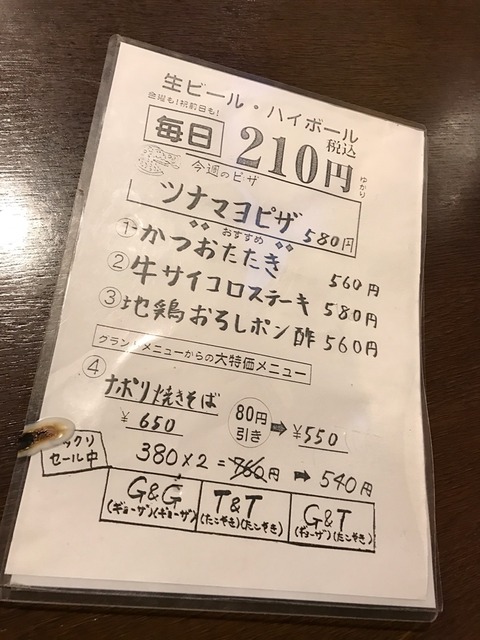 生ビール・ハイボール
金曜も!祝前日も!
毎日 210円 税込
ゆかり
今週のピザ
ツナマヨピザ 580円
おすすめ
① かつおたたき 560円
② 牛サイコロステーキ 580円
③ 地鶏おろしポン酢 560円
グランドメニューからの大特価メニュー
④ ナポリ焼きそば
¥650 80円引き ➡ ¥550
セール中
380×2=760円 ➡ 540円
G&G T&T G&T
(ギョーザ)(ギョーザ) (たこやき)(たこやき) (ギョーザ)(たこやき)